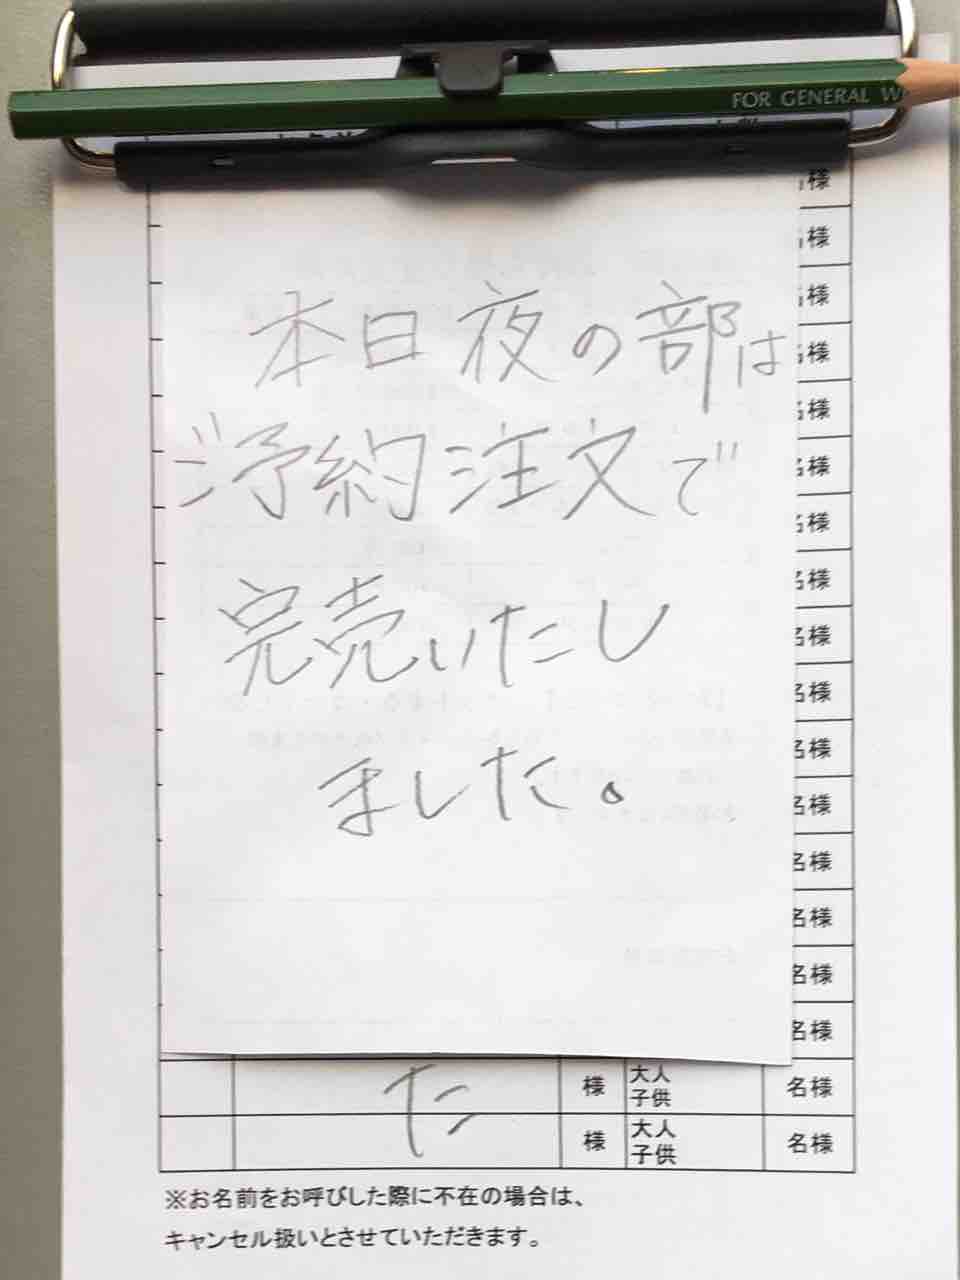 FOR GENERAL W
様
名様
名様
名様
名様
名様
名様
名様
名様
名様
名様
名様
名様
名様
名様
名様
本日夜の部は
ご予約注文で
完売いたし
ました。
た
様 大人 子供 名様
様 大人 子供 名様
※お名前をお呼びした際に不在の場合は、
キャンセル扱いとさせていただきます。